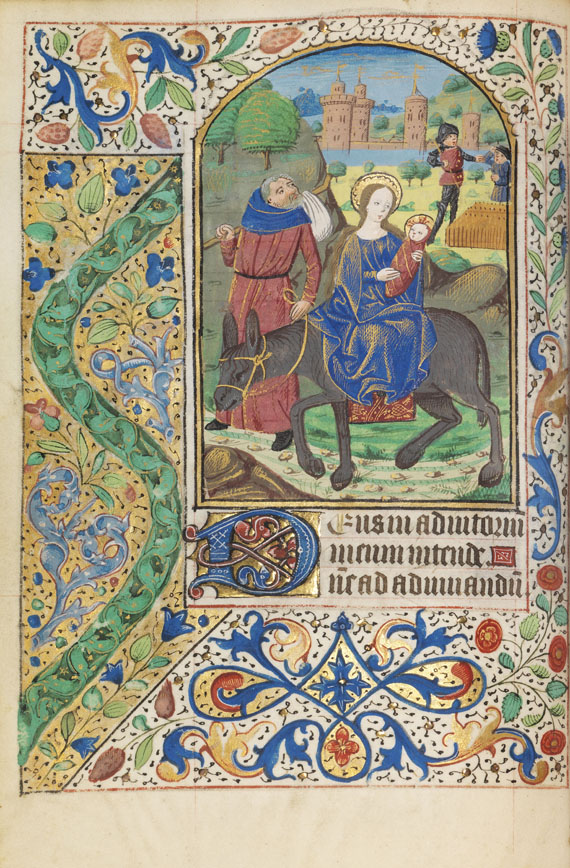 Deus in adiutoriu
meum intende
ne ad adiuuandu